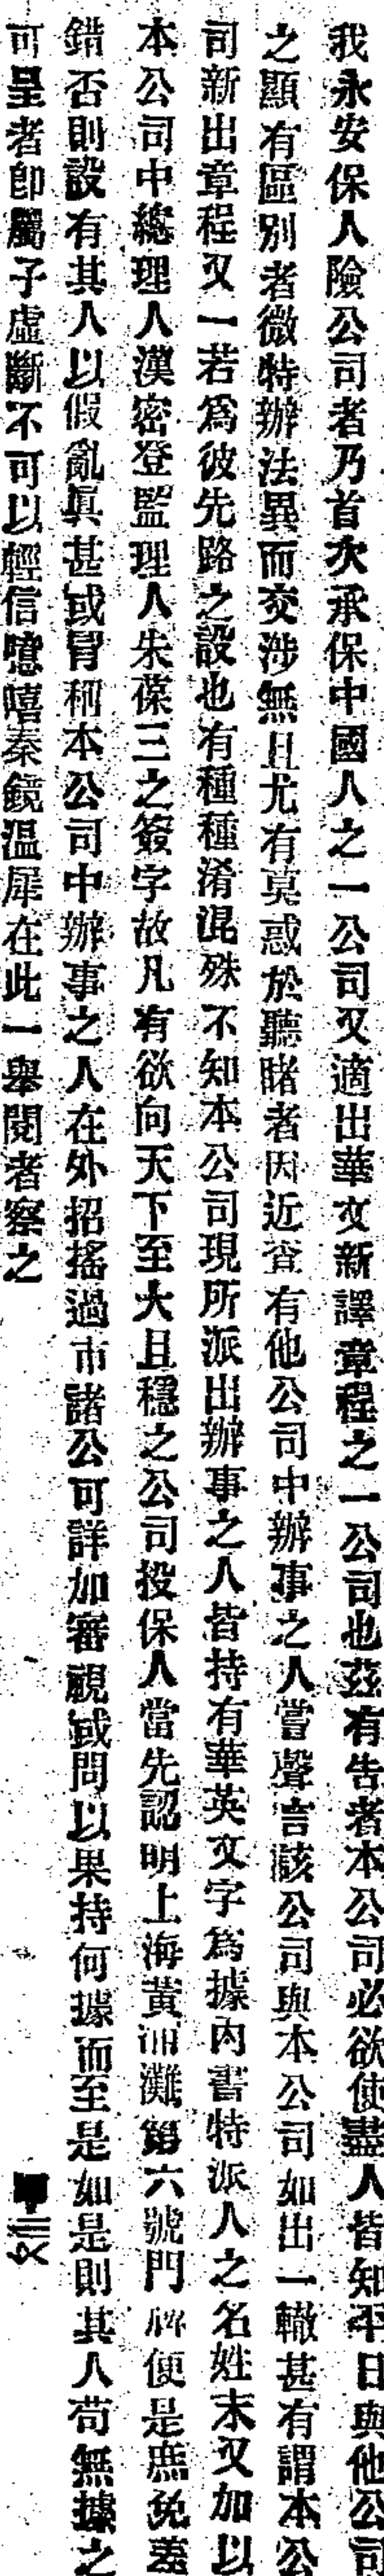 我永安保人險公司者乃首次承保中國人之一公司又適出華文新譯章程之一公司也茲有告者本公司必欲使盡人皆知平日與他公司
之顯有區別者微特辦法異而交涉無且尤有莫惑於聽睹者因近查有他公司中辦事之人嘗聲言該公司與本公司如出一轍甚有謂本公
司新出章程又一若爲彼先路之設也有種種淆混殊不知本公司現所派出辦事之人皆持有華英文字爲據內書特派人之名姓末又加以
本公司中總理人漢密登監理人朱葆三之簽字故凡有欲向天下至大且穩之公司投保人當先認明上海黃浦灘第六號門牌便是庶免差
錯否則設有其人以假亂眞甚或冒稱本公司中辦事之人在外招搖過市諸公可詳加審視或問以果持何據而至是如是則其人苟無據之
可呈者卽屬子虛斷不可以輕信噫嘻秦鏡溫犀在此一舉閱者察之